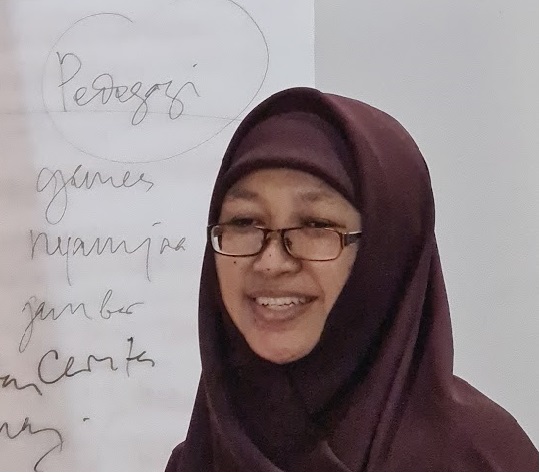 Pedagogi
games
nyanyian
gambar
Cerita